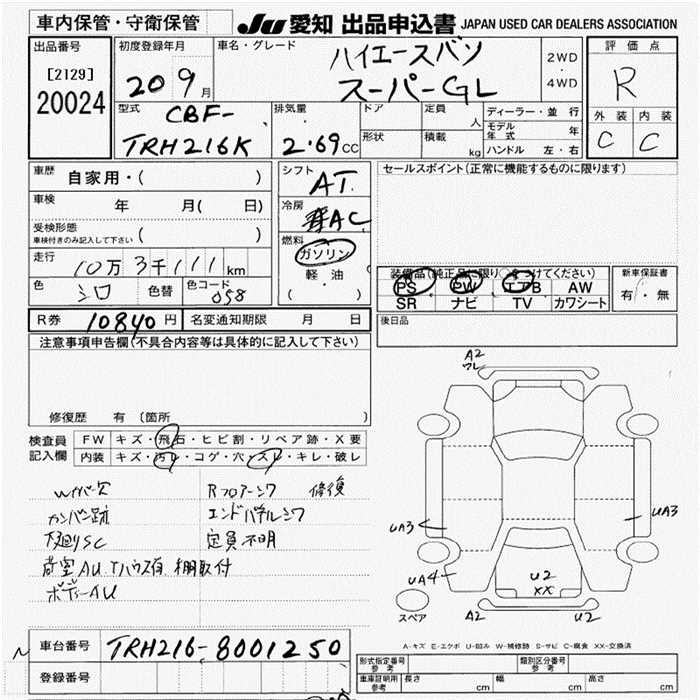 車内保管・守衛保管
JU 愛知 出品申込書 JAPAN USED CAR DEALERS ASSOCIATION
出品番号
[2129]
20024
初度登録年月
20 9月
車名・グレード
ハイエースバン
スーパーGL
2WD
・
4WD
評価点
R
外装 内装
C C
型式
CBF-
TRH216K
排気量
2.69cc
ドア
形状
定員 人
積載 kg
ディーラー・並行
モデル年式 年
ハンドル 左・右
車歴 自家用・( )
車検 年 月( 日)
受検形態
車検付きのみ記入して下さい ( )
走行 10万3千111km
色 シロ 色替 色コード 058
シフト AT
冷房 AC
燃料
ガソリン
軽油
( )
セールスポイント(正常に機能するものに限ります)
装備品(純正品に限り○をつけてください)
PS PW エアB AW
SR ナビ TV カワシート
新車保証書
有・無
R券 10840円 名変通知期限 月 日
後日品
注意事項申告欄(不具合内容等は具体的に記入して下さい)
修復歴 有 (箇所
検査員
記入欄
FW キズ・飛石・ヒビ割・リペア跡・X要
内装 キズ・汚レ・コゲ・穴・スレ・キレ・破レ
Wサバー欠 Rフロアーシワ 修復
カンバン跡 エンドパネルシワ
下廻りSC 定員不明
荷室AU Tハウス有 棚取付
ボディーAU
A2
ワレ
UA3
UA3
UA4
U2
XX
スペア
A2
U2
A-キズ E-エクボ U-凹み W-補修跡 S-サビ C-腐食 XX-交換済
車台番号 TRH216-8001250
登録番号
形式指定番号
参考
類別区分番号
参考
車庫証明用
参考
長さ cm 幅 cm 高さ cm